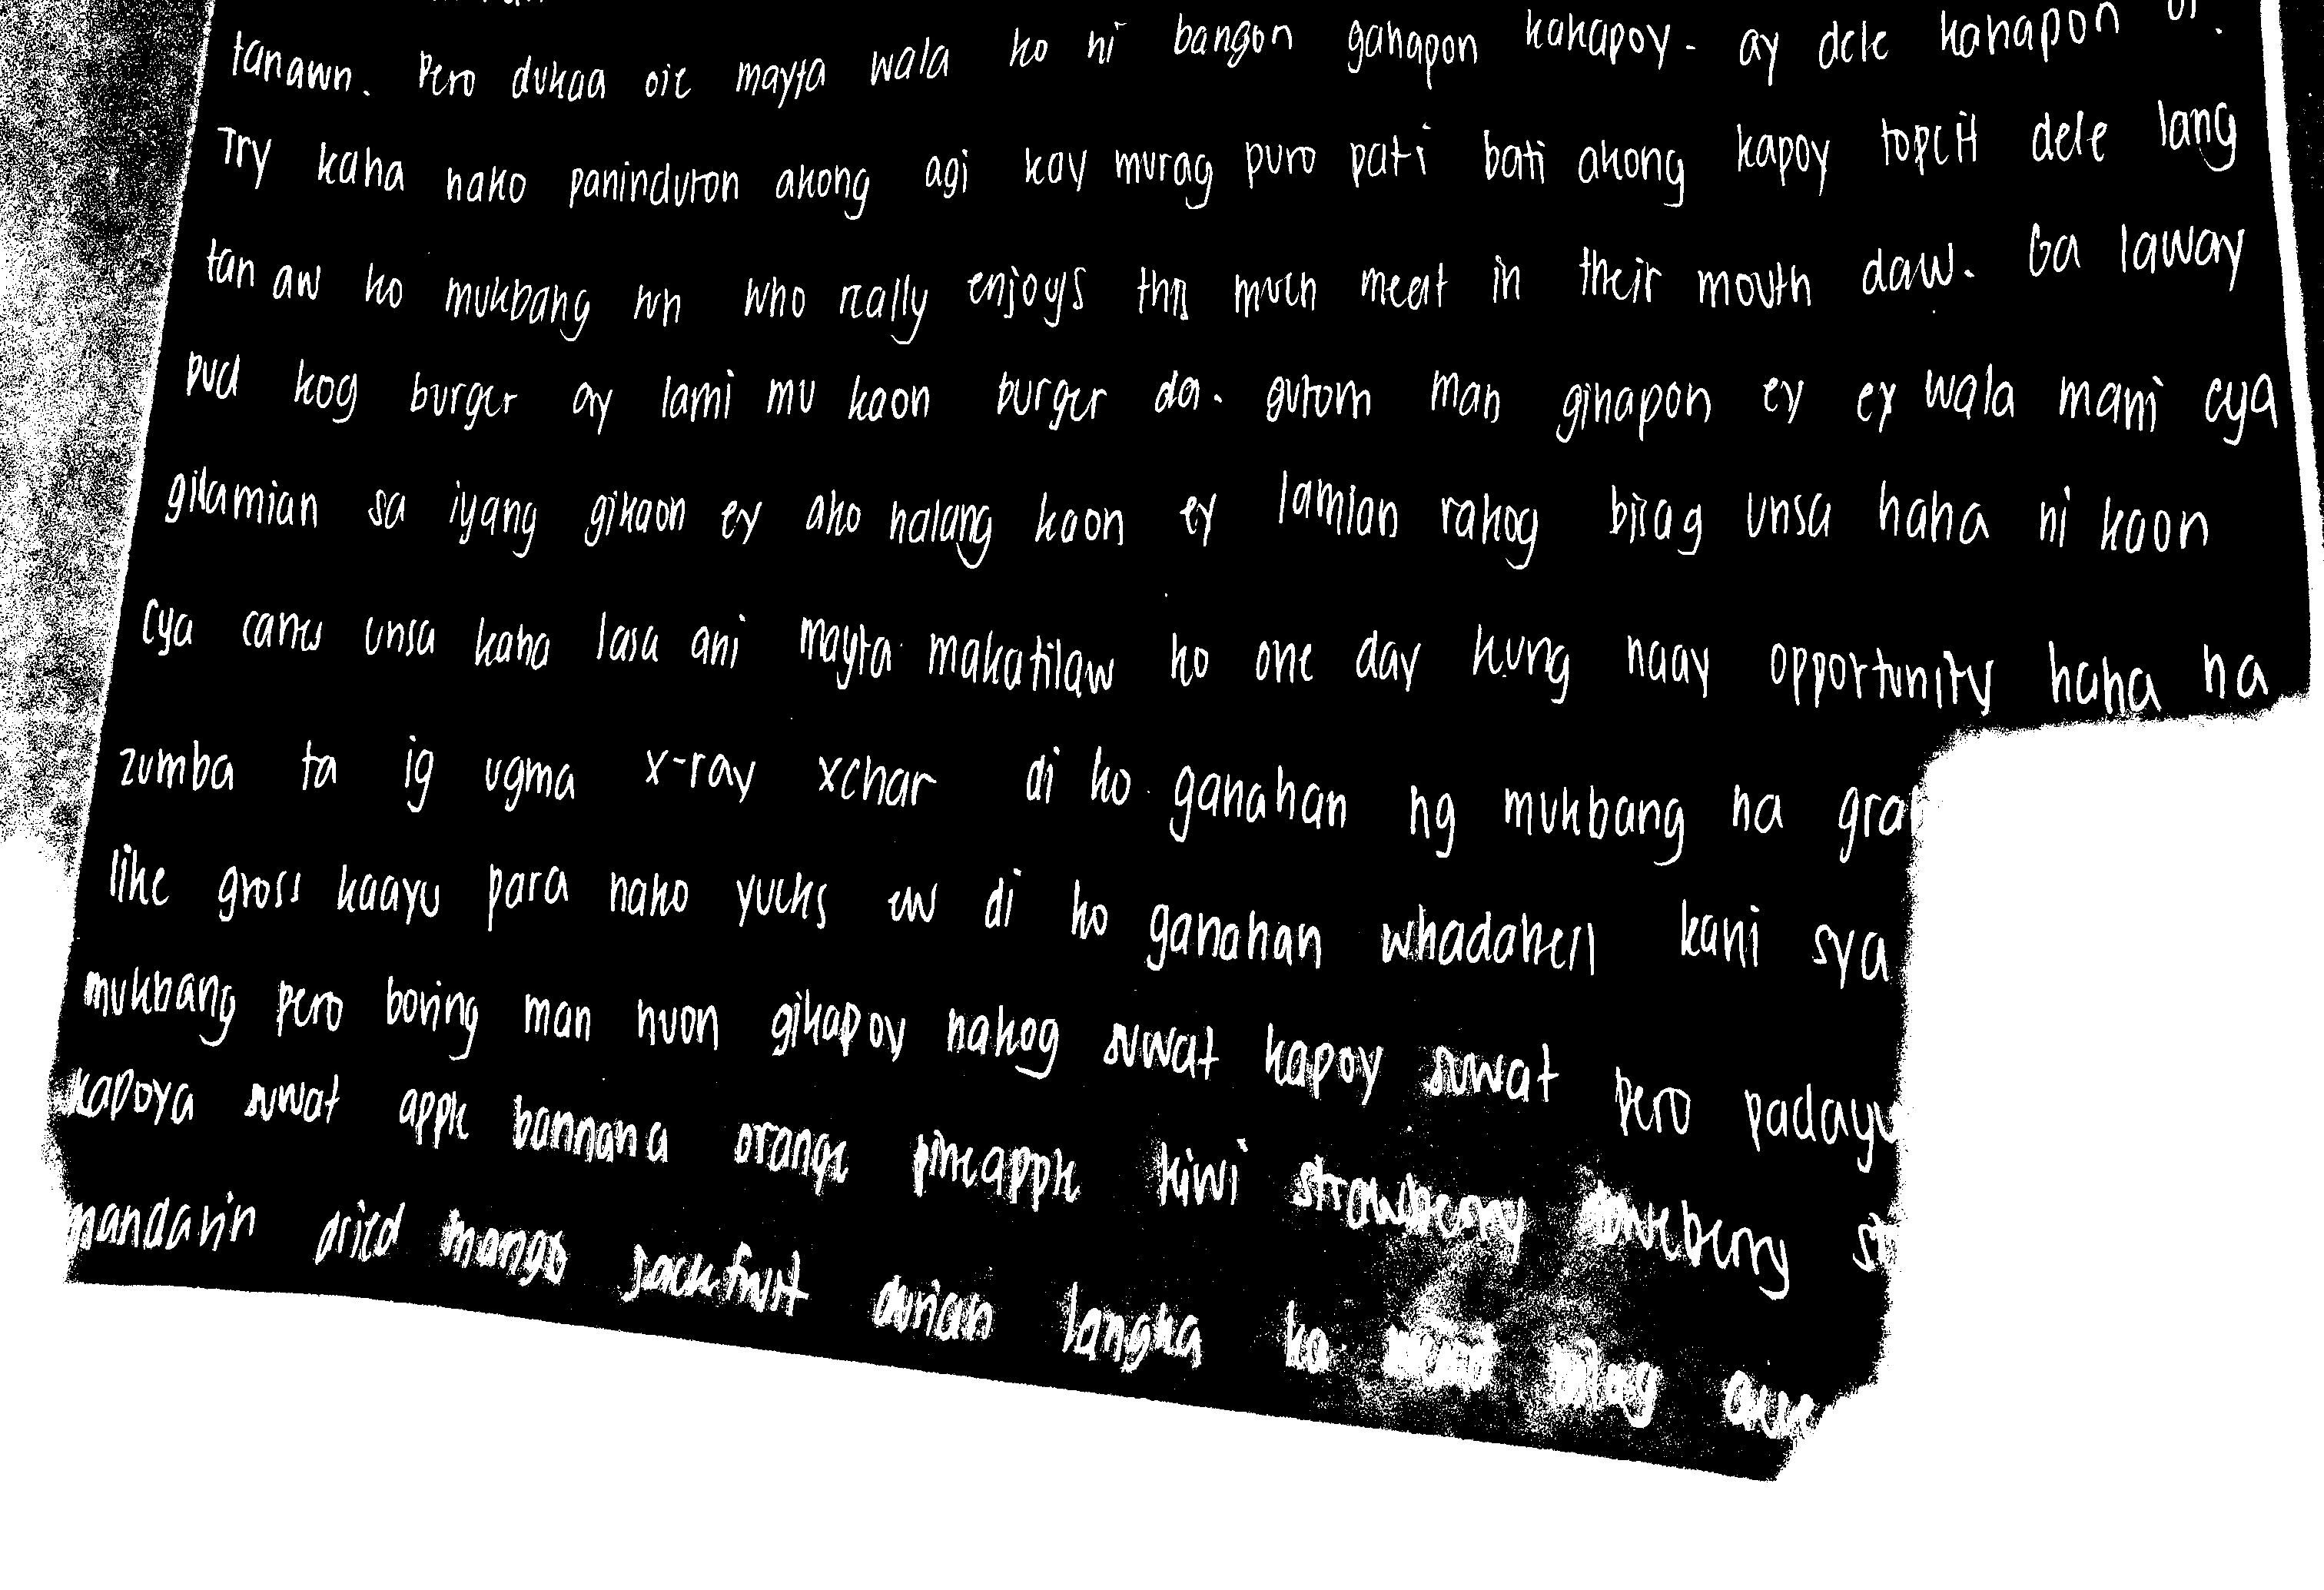 tanawn. Pero dukaa oie mayta wala ko ni bangon gahapon kakapoy - ay dele kahapon oi.
Try kaha nako paninduton akong agi kay murag puro pati bati akong kapoy topcit dele lang
tan aw ko mukbang hin who really enjoys this much meat in their mouth daw. Ga laway
pud kog burger ay lami mu kaon burger da. gutom man gihapon ey ey wala mani eya
gilamian sa iyang gikaon ey ako halang kaon ey lamian rakog bisag unsa haha ni kaon
eya canes unsa kaha lasa ani mayta makatilaw ko one day kung naay opportunity haha ha
zumba ta ig ugma x-ray xchar di ko ganahan ng mukbang na
like gross kaayu para nako yucks ew di ko ganahan whadahell kani sya
mukbang pero boring man nuon gikapoy nakog suwat kapoy suwat pero padayu
kapoya suwat apple bannana orange pineapple kiwi strawberry
mandarin dried mango jackfruit durian langka ko